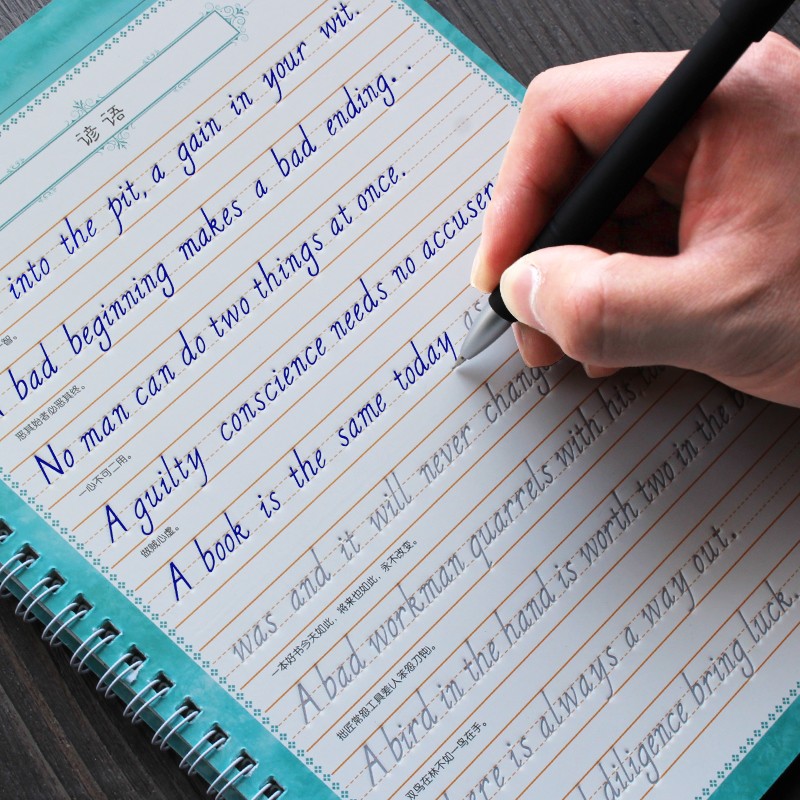 谚语
into the pit, a gain in your wit.
智。
bad beginning makes a bad ending..
恶其始者必恶其终。
No man can do two things at once.
一心不可二用。
A guilty conscience needs no accuser
做贼心虚。
A book is the same today as
was and it will never change
一本好书今天如此，将来也如此，永不改变。
A bad workman quarrels with his
拙匠常怨工具差(人笨怨刀钝)。
A bird in the hand is worth two in the
双鸟在林不如一鸟在手。
is always a way out.
diligence bring luck.